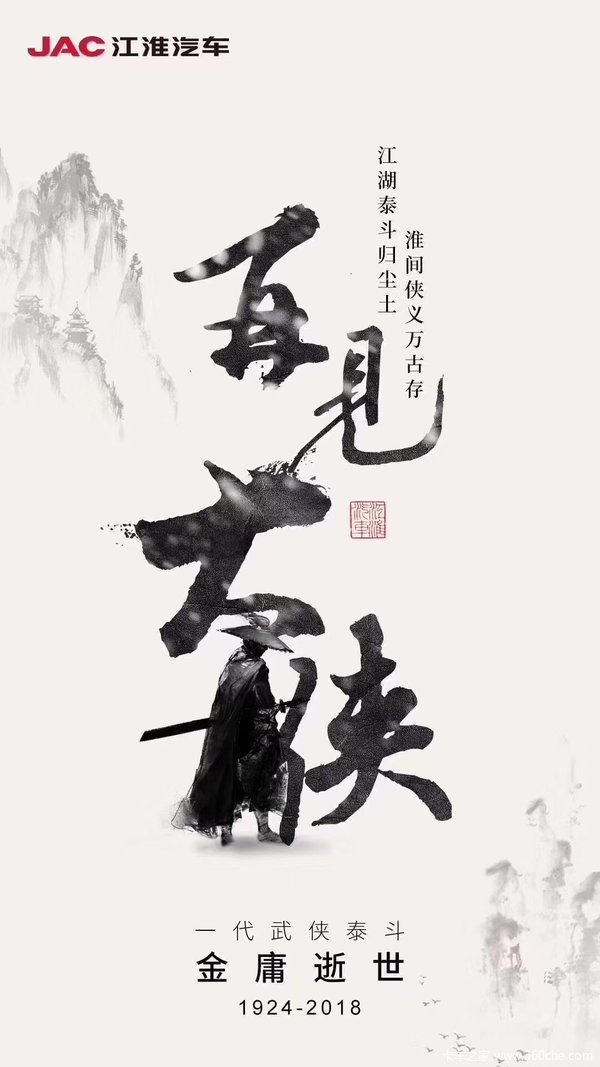 JAC 江淮汽车
江湖泰斗归尘土
淮间侠义万古存
再见
大侠
江淮汽车
一代武侠泰斗
金庸逝世
1924-2018
卡车之家 www.360che.com